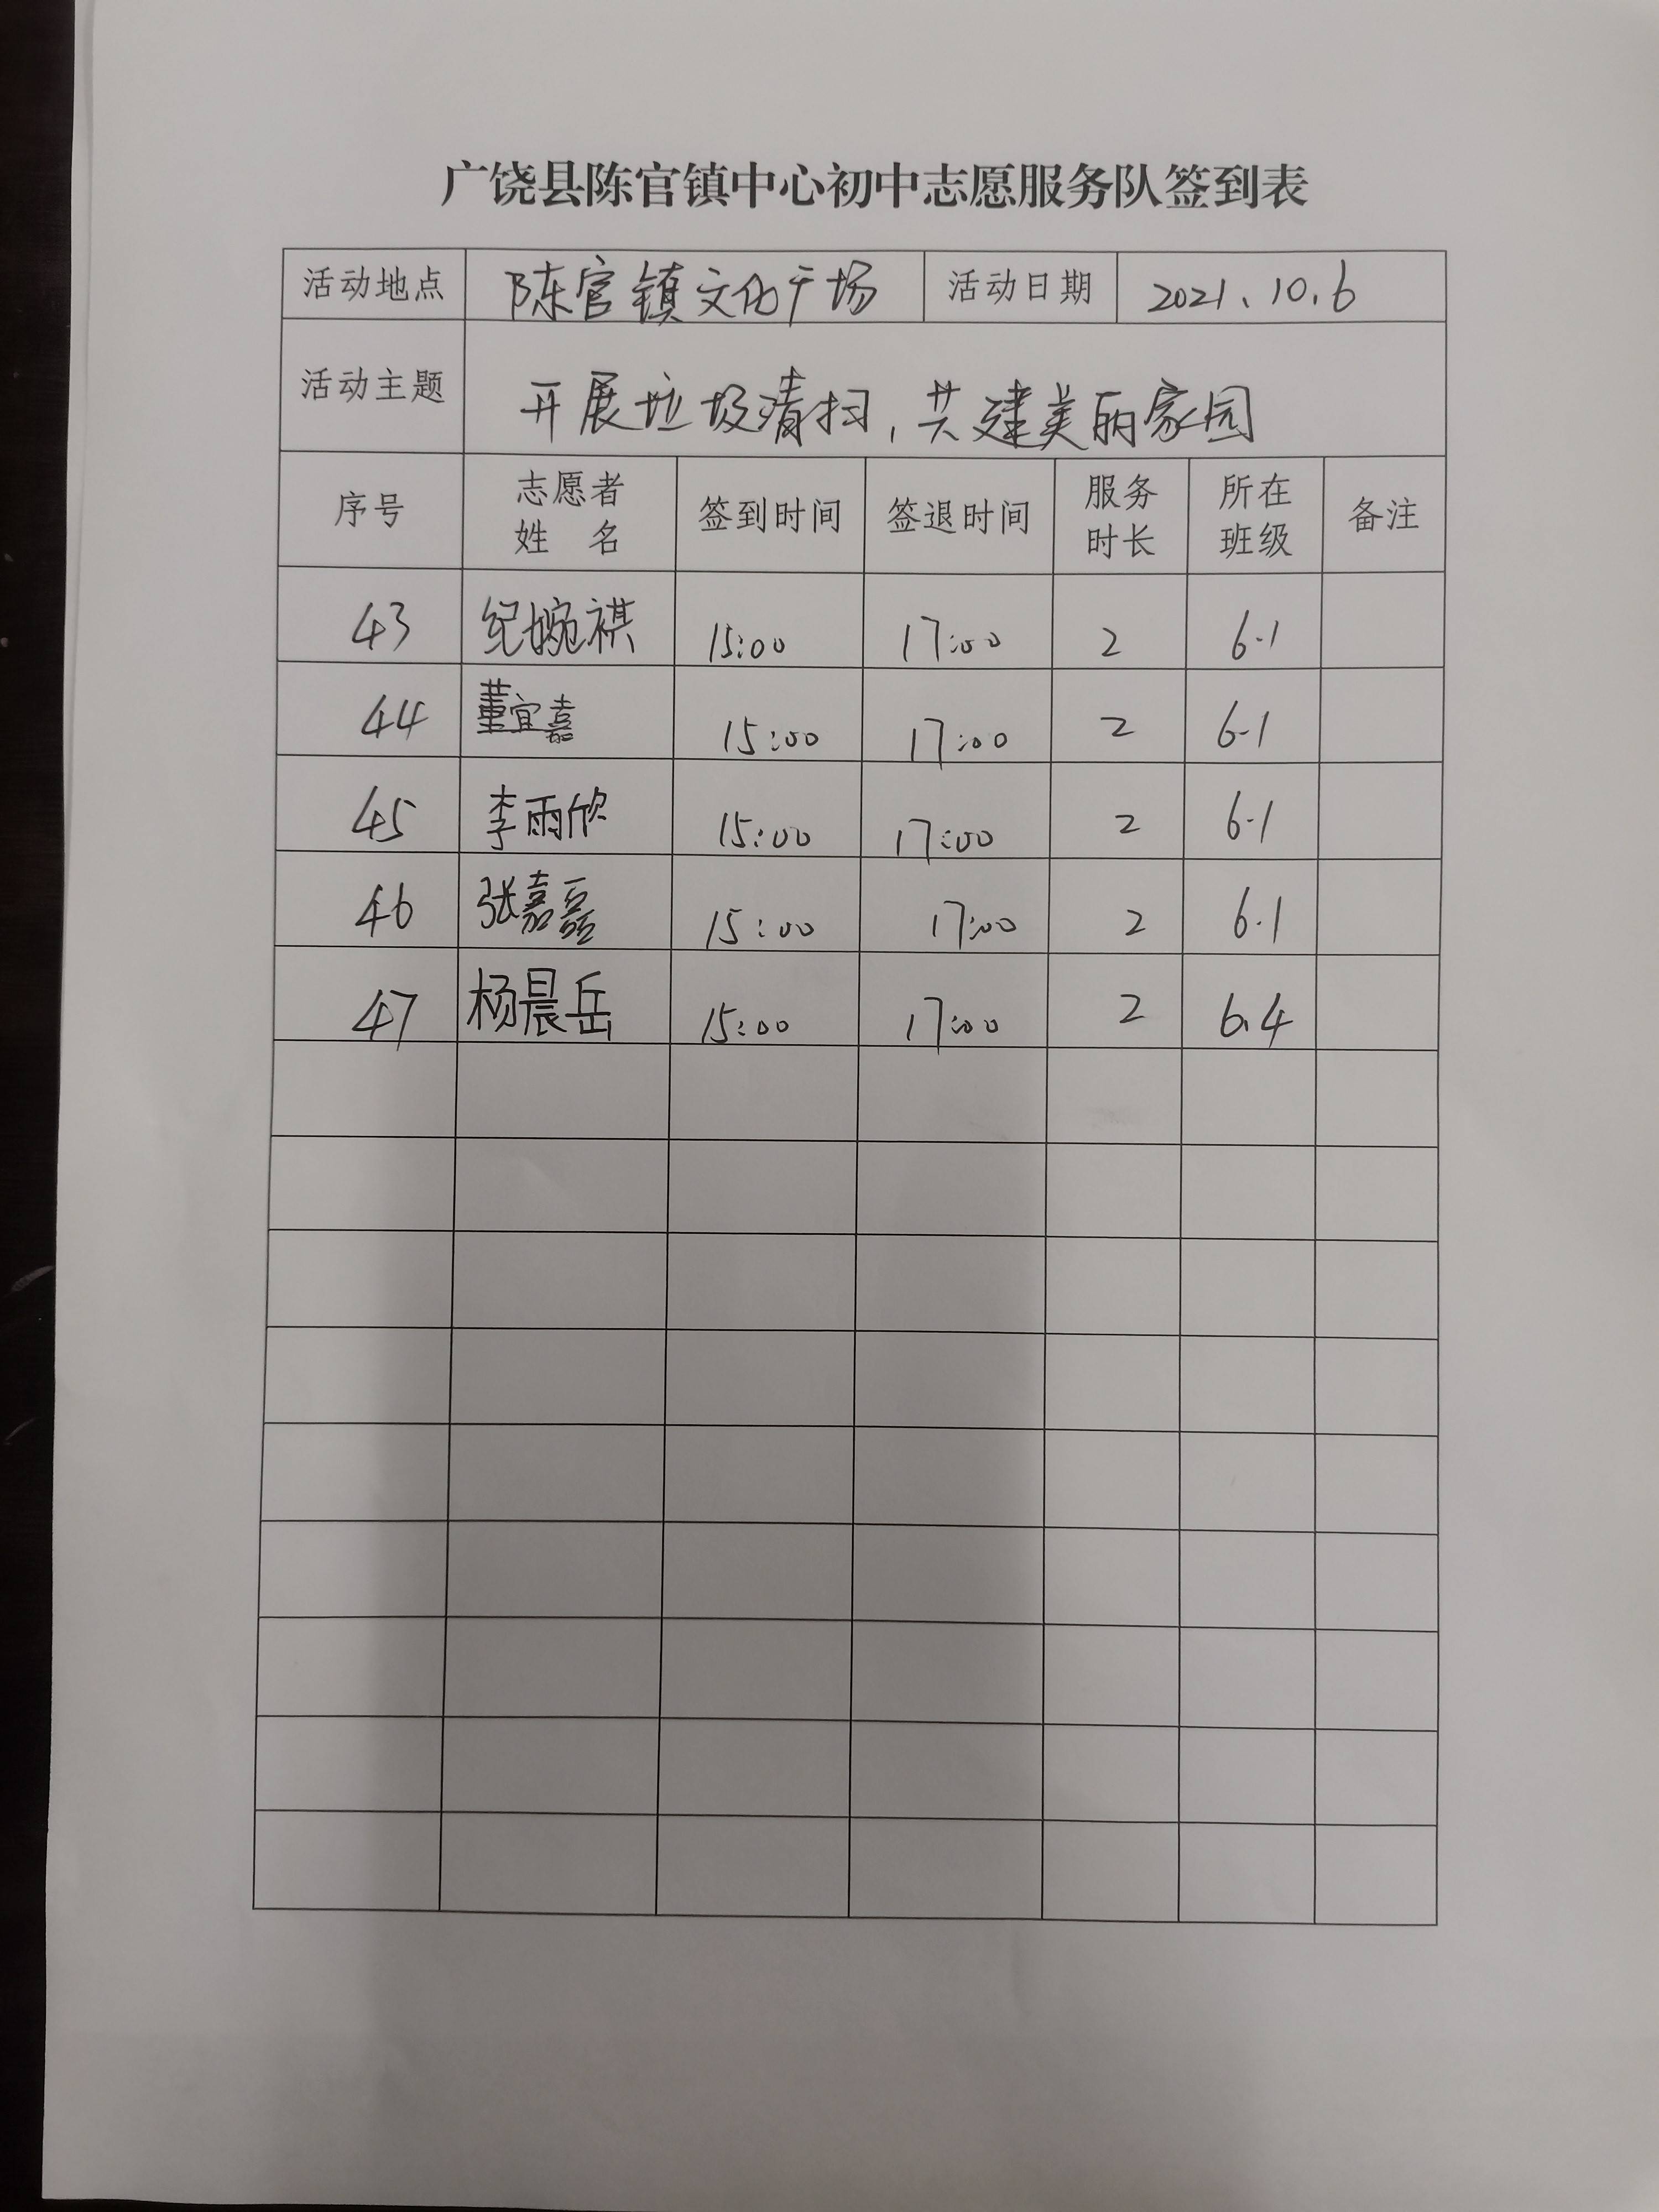 广饶县陈官镇中心初中志愿服务队签到表
活动地点 陈官镇文化广场 活动日期 2021.10.6
活动主题 开展垃圾清扫,共建美丽家园
序号 志愿者姓名 签到时间 签退时间 服务时长 所在班级 备注
43 纪婉祺 15:00 17:00 2 6.1
44 董宜嘉 15:00 17:00 2 6.1
45 李雨欣 15:00 17:00 2 6.1
46 张嘉 15:00 17:00 2 6.1
47 杨晨岳 15:00 17:00 2 6.4